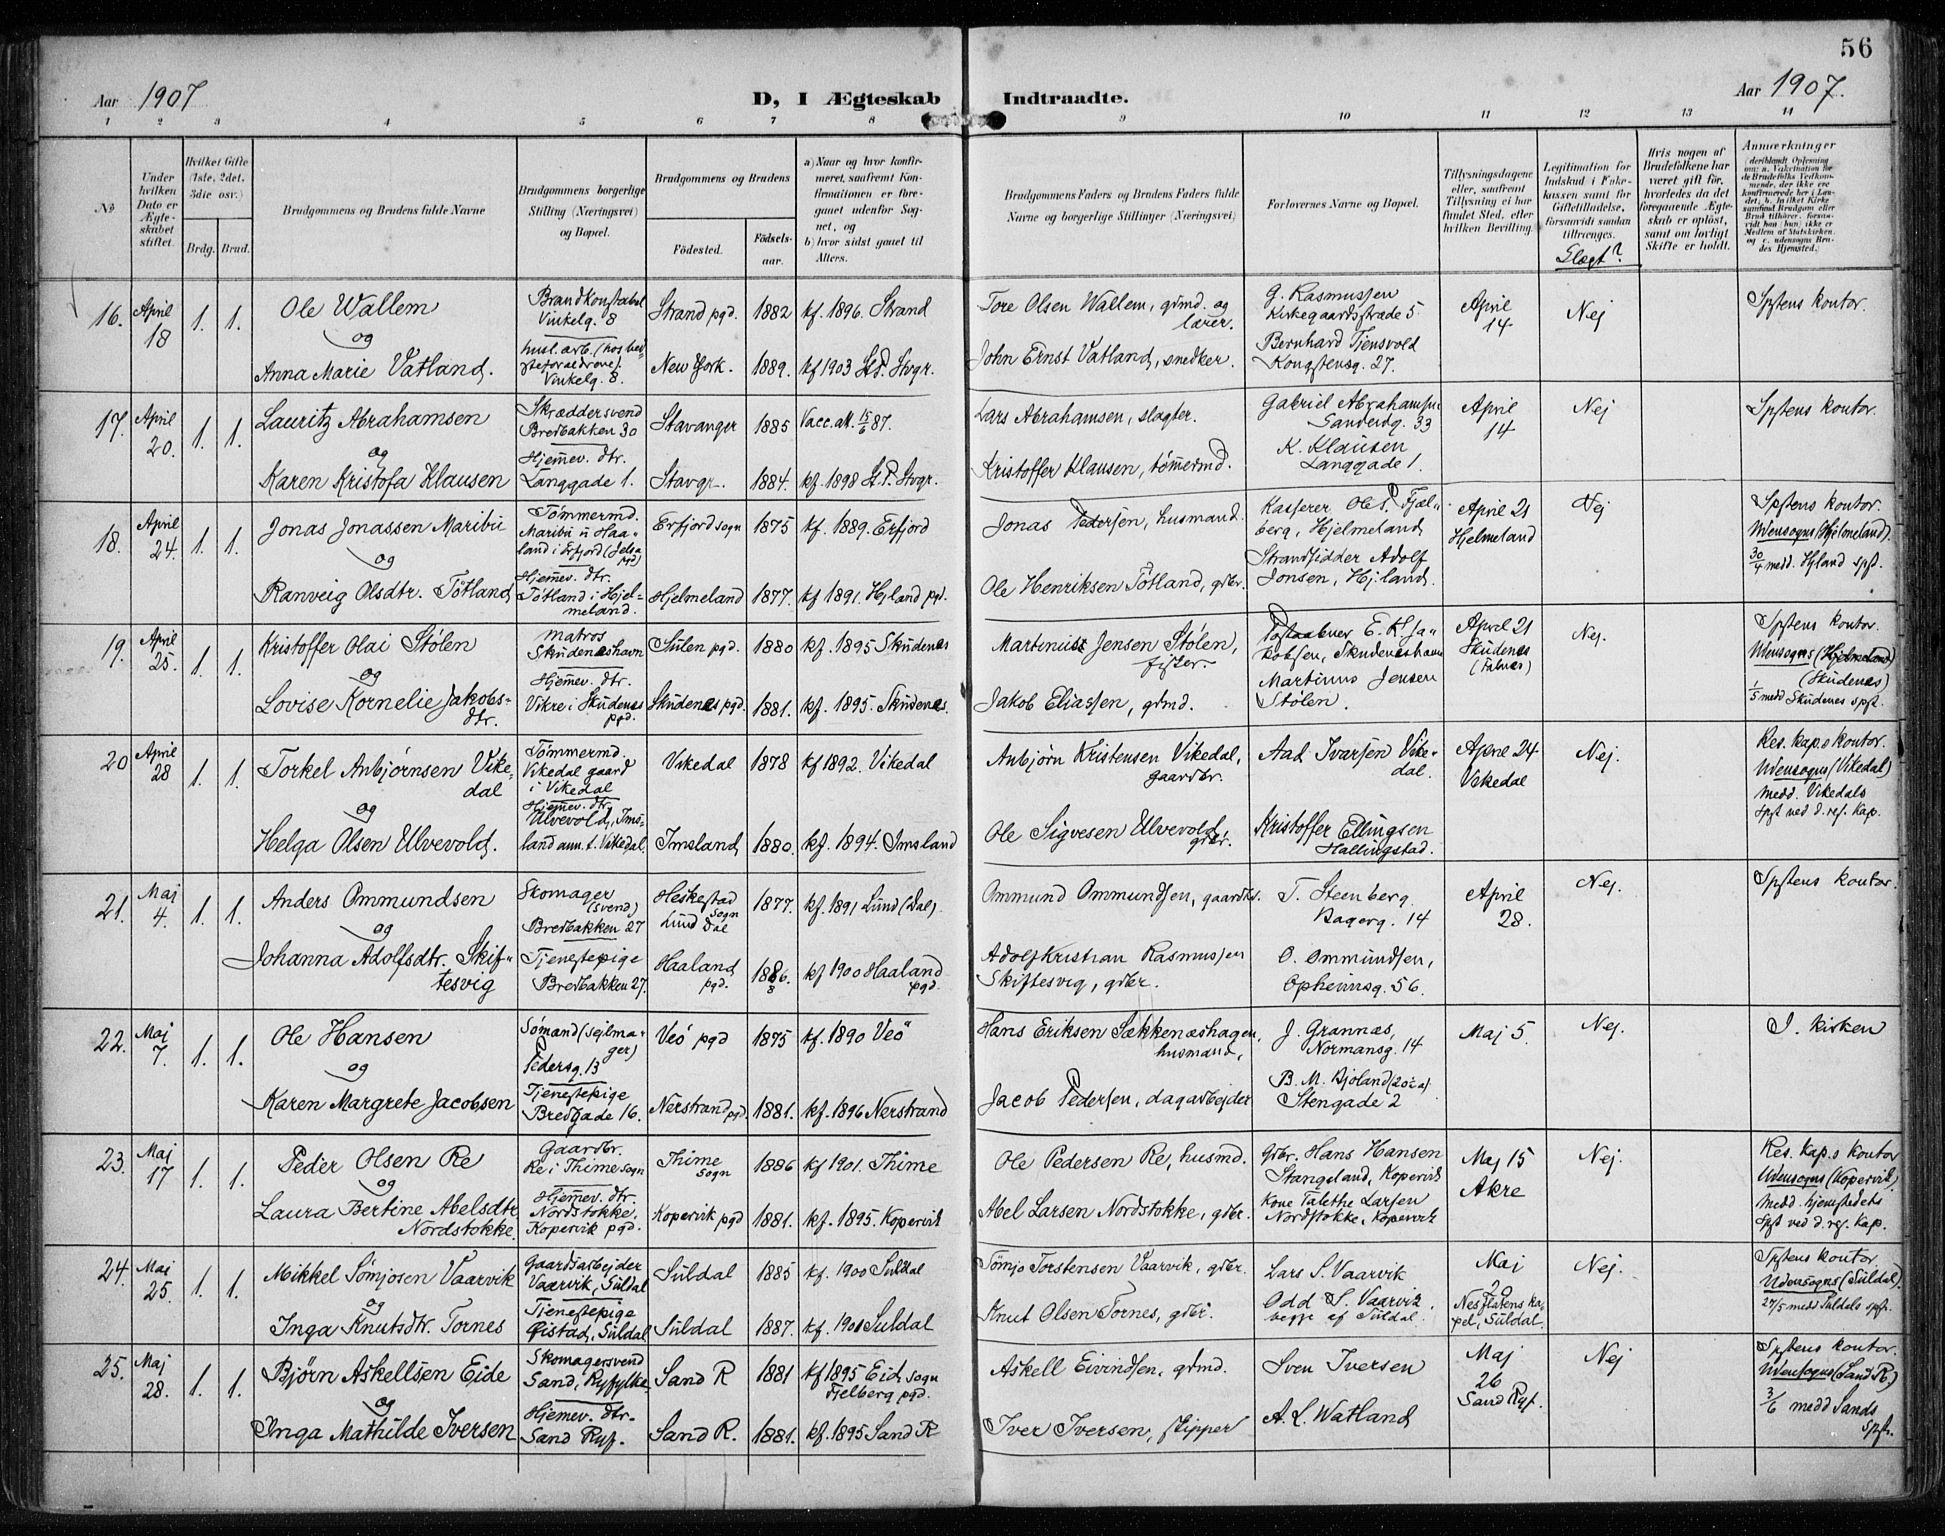 56
Aar 1907
D, I Ægteskab Indtraadte.
Aar 1907.
1 2 3 4 5 6 7 8 9 10 11 12 13 14
No
Under hvilken Dato er Ægteskabet stiftet.
Hvilket Gifte (1ste, 2det, 3die osv.)
Brdg. Brud.
Brudgommens og Brudens fulde Navne
Brudgommens borgerlige Stilling (Næringsvei) og Bopæl.
Brudgommens og Brudens
Fødested.
Fødselsaar.
a) Naar og hvor konfirmeret, saafremt Konfirmationen er foregaaet udenfor Sognet, og
b) hvor sidst gaaet til Alters.
Brudgommens Faders og Brudens Faders fulde Navne og borgerlige Stillinger (Næringsvei)
Forlovernes Navne og Bopæl.
Tillysningsdagene eller, saafremt Tillysning ei har fundet Sted, efter hvilken Bevilling.
Legitimation for Indskud i Enkekassen samt for Giftetilladelse, forsaavidt saadan tiltrænges.
Slægt?
Hvis nogen af Brudefolkene har været gift før, hvorledes da det foregaaende Ægteskab er opløst, samt om lovligt Skifte er holdt.
Anmærkninger
16. April 18 1. 1.
Ole Wallem
og
Anna Marie Vatland.
Brandkonstabel
Vinkelg. 8
Vinkelg. 8.
Strand pgd. 1882 kf. 1896 Strand
New York. 1889. kf 1903 St. P. Stvgr.
Tore Olsen Wallem, grmd. og
lærer.
John Ernst Vatland, snedker.
G. Rasmussen
Kirkegaardsstræde 5
Bernhard Tjensvold
Kongstensg. 27.
April
14
Nej
Spstens kontor.
17. April 20. 1. 1.
Lauritz Abrahamsen
og
Karen Kristofa Klausen
Skræddersvend
Bredbakken 30
Hjemmev. dtr.
Langgade 1.
Stavanger 1885 Vacc. att. 15/6 87.
Stavgr. 1884. kf. 1898 St. P. Stvgr.
Lars Abrahamsen, slagter.
Kristoffer Klausen, tømmermd.
Gabriel Abrahamsen
Sandeidg. 33
K. Klausen
Langgade 1.
April
14
Nej
Spstens kontor.
18. April 24. 1. 1.
Jonas Jonassen Maribu
og
Ranveig Olsdtr. Tøtland
Tømmermd.
Maribu u Haa-
land i Erfjord (Jelsa
pgd)
Hjemmev. dtr.
Tøtland i Hjel-
meland.
Erfjord sogn 1875 kf. 1889. Erfjord
Hjelmeland 1877. kf 1891. Hjland pgd.
Jonas Pedersen, husmand.
Ole Henriksen Tøtland, grbr.
Kasserer Ole P. Fjæl-
berg, Hjelmeland
Strandsidder Adolf
Jonsen, Hjland.
April 21
Hjelmeland
Nej
Spstens kontor.
Udensogns (Hjelmeland).
30/4 medd. Hjland spst.
19. April 25. 1. 1.
Kristoffer Olai Stølen
og
Lovise Kornelie Jakobs-
dtr.
Matros
Skudeneshavn
Hjemmev. dtr.
Vikre i Skudenes
pgd.
1880 kf. 1895 Skudenes
Skudenes pgd. 1881. kf. 1895. Skudenes.
Martinius Jensen Stølen,
fisker.
Jakob Eliassen, grmd.
Postaabner E. K. Ja-
kobsen, Skudeneshavn
Martinus Jensen
Stølen.
April 21
Skudenes
(Falnes)
Nej.
Spstens kontor.
Udensogns (Hjelmeland)
(Skudenes)
1/5 medd Skudenes spst.
20 April 28 1. 1.
Torkel Anbjørnsen Vike-
dal
og
Helga Olsen Ulvevold.
Tømmermd.
Vikedal gaard
i Vikedal
Hjemmev. dtr.
Ulvevold, Ims-
land ann. t. Vikedal.
Vikedal 1878 kf 1892. Vikedal
Imsland 1880. kf. 1894. Imsland
Anbjørn Kristensen Vikedal,
gaardbr.
Ole Sigvesen Ulvevold,
grbr.
Aad Ivarsen Vike-
dal.
Kristoffer Ellingsen
Hallingstad.
April 24
Vikedal
Nej.
Res. kap.s kontor.
Udensogns (Vikedal)
Medd. Vikedals
Spst ved d. res. kap.
21. Maj 4. 1. 1.
Anders Ommundsen
og
Johanna Adolfsdtr. Skif-
tesvig
Skomager
(svend)
Bredbakken 27
Tjenestepige
Bredbakken 27.
Heskestad
sogn
Lund Dal
1877. kf. 1891 Lund (Dal).
Haaland
pgd.
1886. kf 1900 Haaland
pgd.
Ommund Ommundsen, gaardbr.
Adolf Kristian Rasmussen
Skiftesvig, grbr.
T. Steenberg
Bagerg. 14
O. Ommundsen,
Opheimsg. 56.
April
28.
Nej.
Spstens kontor.
22. Maj 7. 1. 1.
Ole Hansen
og
Karen Margrete Jacobsen
Sømand (sejlma-
ger)
Pedersg. 13
Tjenestepige
Bredgade 16.
Veø pgd 1875 kf. 1890 Veø
Nerstrand pgd. 1881. kf. 1896 Nerstrand
Hans Eriksen Sækkenæshagen,
husmand,
Jacob Pedersen, dagarbejder
J. Grannæs,
Normansg. 14
B. M. Bjoland
Stengade 2
Maj 5.
Nej.
I kirken
23. Maj 17 1. 1.
Peder Olsen Re
og
Laura Bertine Abelsdtr
Nordstokke.
Gaardbr.
Re i Thime sogn
Hjemmev. dtr.
Nordstokke,
Kopervik pgd.
Thime
sogn
1886 kf 1901. Thime
Kopervik pgd 1881. kf. 1895. Kopervik
Ole Pedersen Re, husmd.
Abel Larsen Nordstokke, grbr.
Grbr. Hans Hansen
Stangeland, Kopervik
Kone Talethe Larsen
Nordstokke, Kopervik
Maj 15
Akre
Nej.
Res. kap.s kontor
Udensogns (Kopervik).
Medd. hjemstedets
Spst ved d. res. kap.
24. Maj 25. 1. 1.
Mikkel Sømjosen Vaarvik
og
Inga Knutsdtr. Tornes
Gaardsarbejder
Vaarvik, Suldal
Tjenestepige
Øistad, Suldal
Suldal 1885 kf. 1900 Suldal
Suldal 1887. kf. 1901 Suldal
Sømjo Torstensen Vaarvik, grbr.
Knut Olsen Tornes, grbr.
Lars S. Vaarvik
Odd S. Vaarvik
begge af Suldal.
Maj
20
Nesflatens ka-
pel, Suldal.
Nej.
Spstens kontor
Udensogns (Suldal).
27/5 medd Suldals spst.
25. Maj 28. 1. 1.
Bjørn Askellsen Eide
og
Inga Mathilde Iversen
Skomagersvend
Sand, Ryfylke
Hjemev. dtr.
Sand Ryf.
Sand R 1881 kf 1895 Eid sogn
Fjelberg pgd.
Sand R. 1881. kf. 1895 Sand R
Askell Eivindsen, grmd.
Iver Iversen, skipper
Sven Iversen
A. L. Watland
Maj
26
Sand Ryf.
Nej
Spstens kontor.
Udensogns (Sand R.)
3/6 medd Sands
Spst.